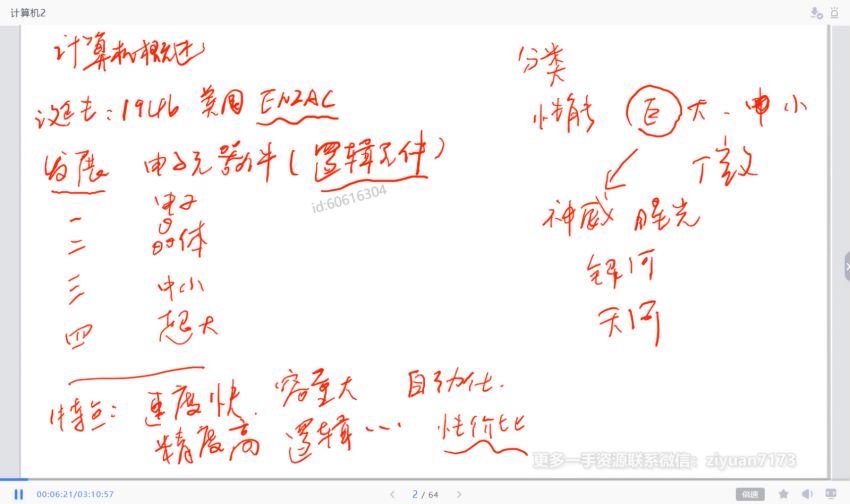 计算机2
计算机概述
诞生：1946 美国 ENIAC
发展 电子元器件（逻辑元件）
一 电子
二 晶体
三 中小
四 超大
特点：速度快 容量大 自动化
精度高 逻辑… 性价比
分类
性能 巨 大、中 小
个微
神威 曙光
银河
天河
id:60616304
更多一手资源联系微信：ziyuan7173
00:06:21/03:10:57
2 / 64
倍速